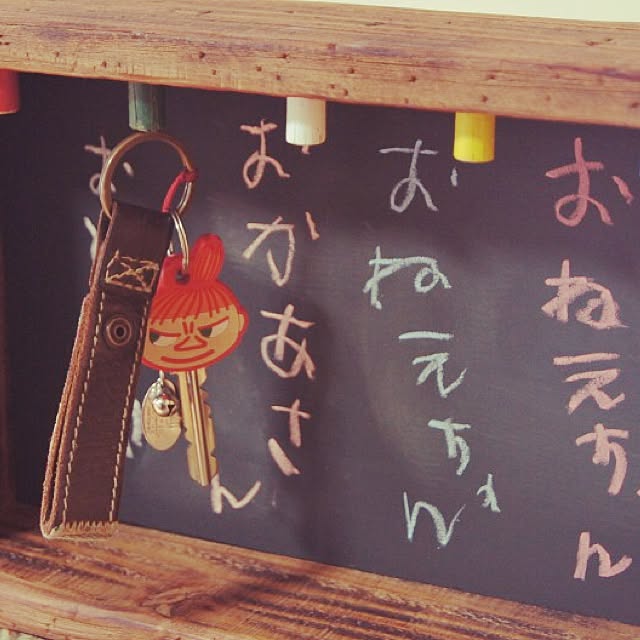 おねえちゃん
おねえちゃん
おかあさん
お